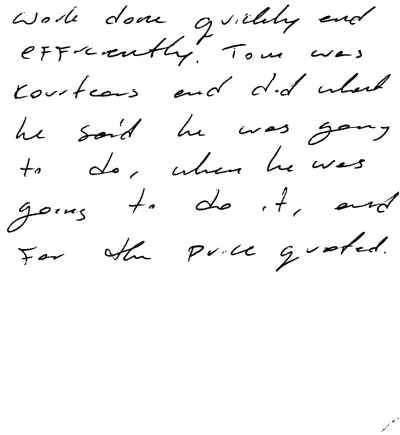 Work done quickly and
efficiently. Tom was
courteous and did what
he said he was going
to do, when he was
going to do it, and
for the price quoted.